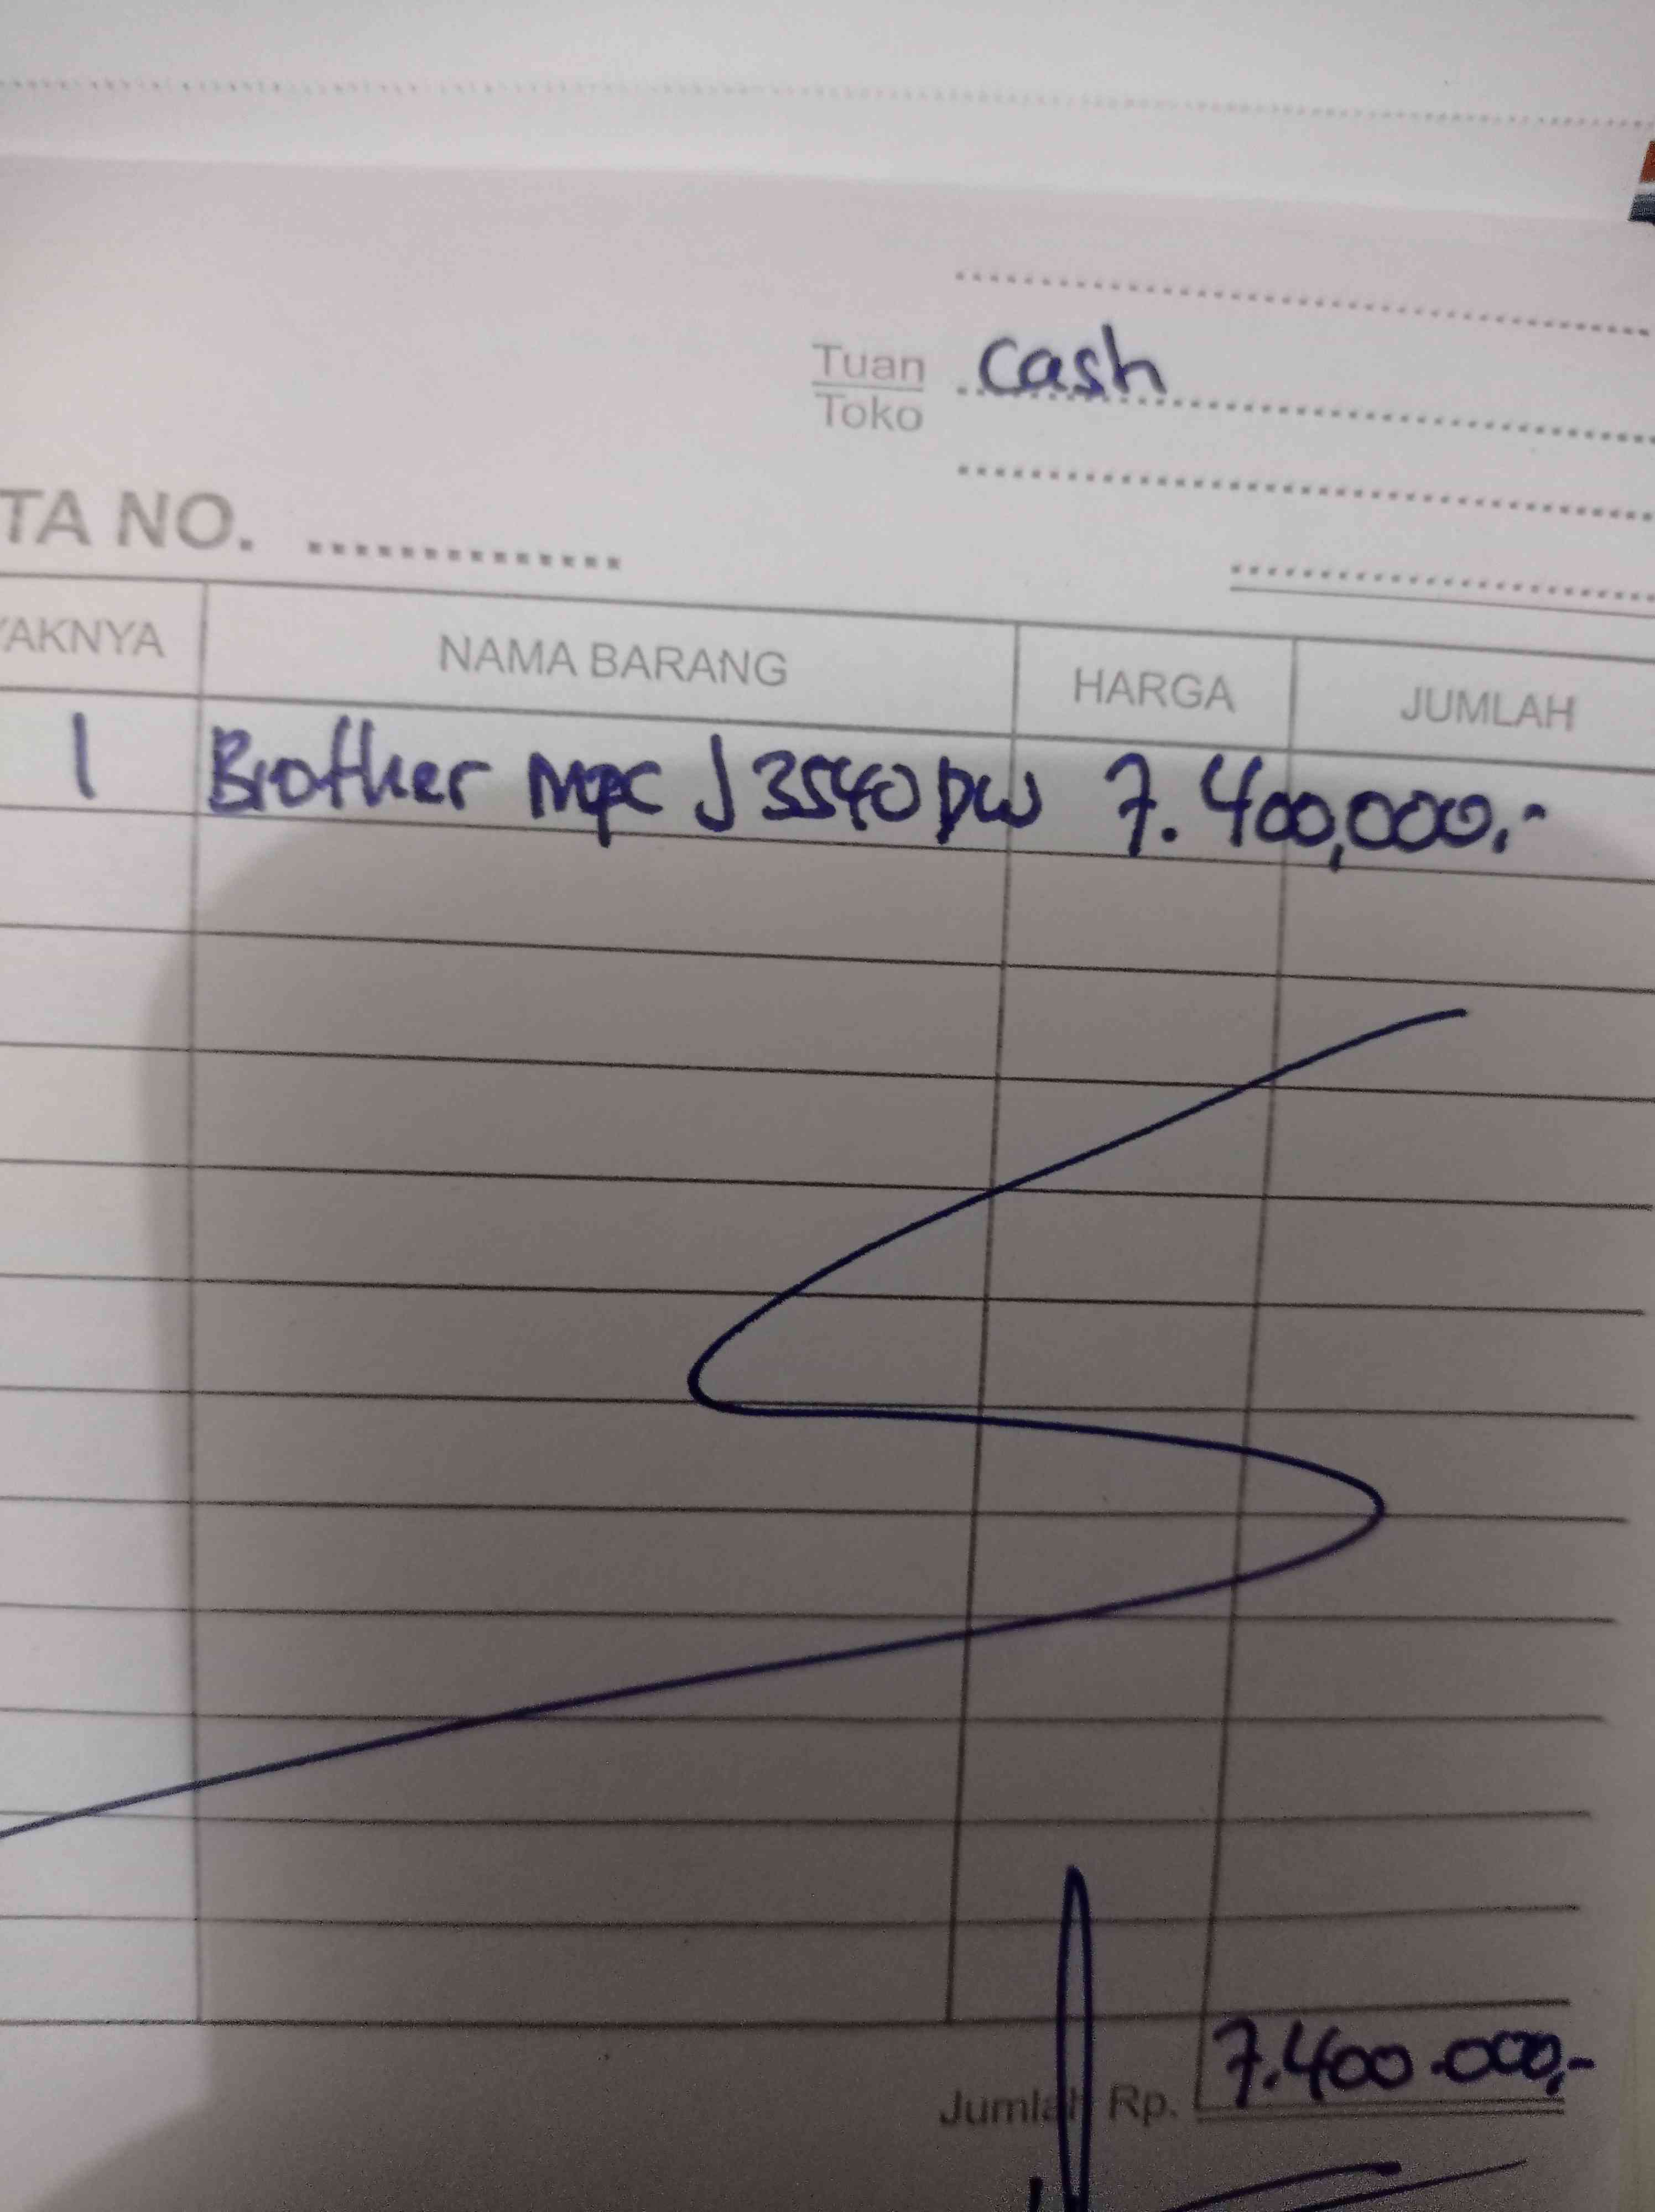 Tuan cash
Toko
TA NO. ..............
YAKNYA NAMA BARANG HARGA JUMLAH
1 Brother MFC J3540DW 7.400,000,-
Jumlah Rp. 7.400.000,-